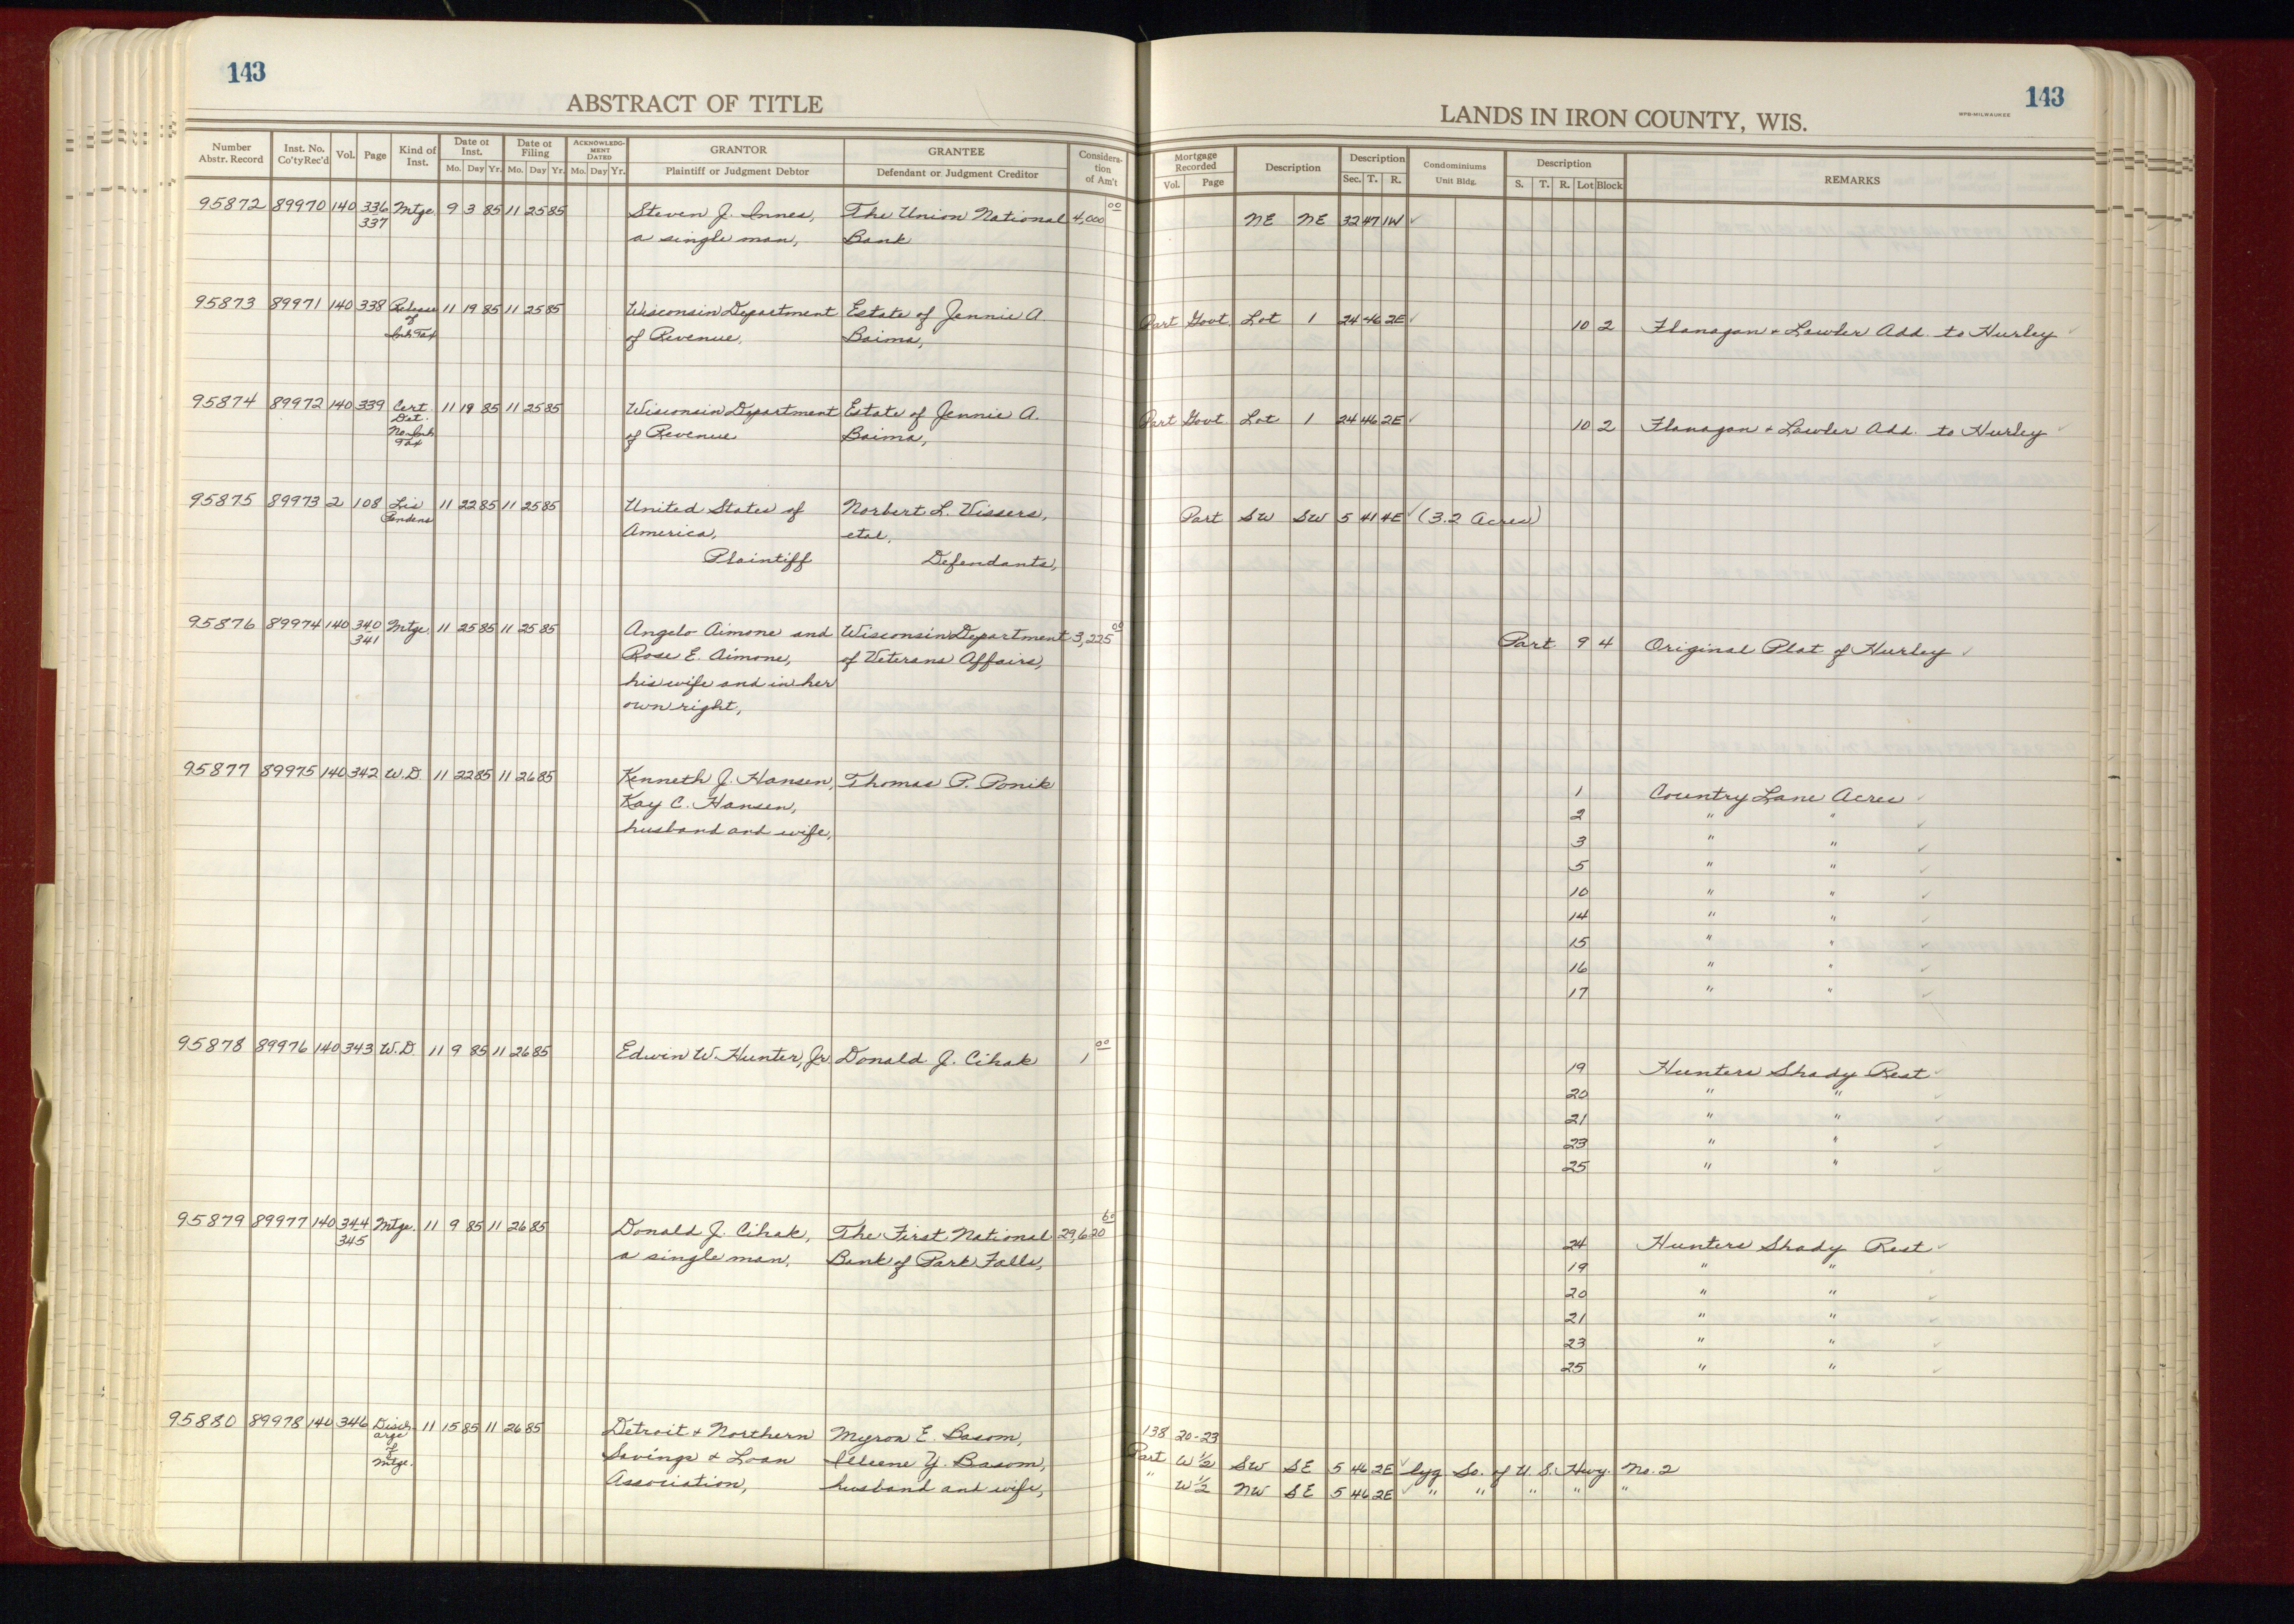 143
143
ABSTRACT OF TITLE
LANDS IN IRON COUNTY, WIS.
WPB-MILWAUKEE
Number Abstr. Record | Inst. No. Co'ty Rec'd | Vol. | Page | Kind of Inst. | Date of Inst. Mo. Day Yr. | Date of Filing Mo. Day Yr. | ACKNOWLEDGMENT DATED Mo. Day Yr. | GRANTOR Plaintiff or Judgment Debtor | GRANTEE Defendant or Judgment Creditor | Consideration of Am't | Mortgage Recorded Vol. Page | Description | Description Sec. T. R. | Condominiums Unit Bldg. | Description S. T. R. Lot Block | REMARKS
95872 89970 140 336 Mtge. 9 3 85 11 25 85 Steven J. Innes, The Union National 4,000 00 NE NE 32 47 1W ✓
337 a single man, Bank
95873 89971 140 338 Release 11 19 85 11 25 85 Wisconsin Department Estate of Jennie A. Part Govt. Lot 1 24 46 2E ✓ 10 2 Flanagan + Lawler Add. to Hurley ✓
of of Revenue, Baima,
Inh. Tax
95874 89972 140 339 Cert. 11 19 85 11 25 85 Wisconsin Department Estate of Jennie A. Part Govt. Lot 1 24 46 2E ✓ 10 2 Flanagan + Lawler Add. to Hurley ✓
Det. of Revenue Baima,
No Inh.
Tax
95875 89973 2 108 Lis 11 22 85 11 25 85 United States of Norbert L. Vissers, Part SW SW 5 41 4E ✓ (3.2 Acres)
Pendens America, etal,
Plaintiff Defendants,
95876 89974 140 340 Mtge. 11 25 85 11 25 85 Angelo Aimone and Wisconsin Department 3,225 00 Part 9 4 Original Plat of Hurley ✓
341 Rose E. Aimone, of Veterans Affairs,
his wife and in her
own right,
95877 89975 140 342 W.D. 11 22 85 11 26 85 Kenneth J. Hansen, Thomas P. Ponik 1 Country Lane Acres ✓
Kay C. Hansen, 2 " " ✓
husband and wife, 3 " " ✓
5 " " ✓
10 " " ✓
14 " " ✓
15 " " ✓
16 " " ✓
17 " " ✓
95878 89976 140 343 W.D. 11 9 85 11 26 85 Edwin W. Hunter, Jr. Donald J. Cihak 1 00 19 Hunters Shady Rest ✓
20 " " ✓
21 " " ✓
23 " " ✓
25 " " ✓
95879 89977 140 344 Mtge. 11 9 85 11 26 85 Donald J. Cihak, The First National 29,620 60 24 Hunters Shady Rest ✓
345 a single man, Bank of Park Falls, 19 " " ✓
20 " " ✓
21 " " ✓
23 " " ✓
25 " " ✓
95880 89978 140 346 Disch- 11 15 85 11 26 85 Detroit + Northern Myron E. Basom, 138 20-23
arge Savings + Loan Y. Basom, Part W 1/2 SW SE 5 46 2E ✓ lyg So. of U.S. Hwy. No. 2
of Association, husband and wife, " W 1/2 NW SE 5 46 2E ✓ " " " " "
Mtge.